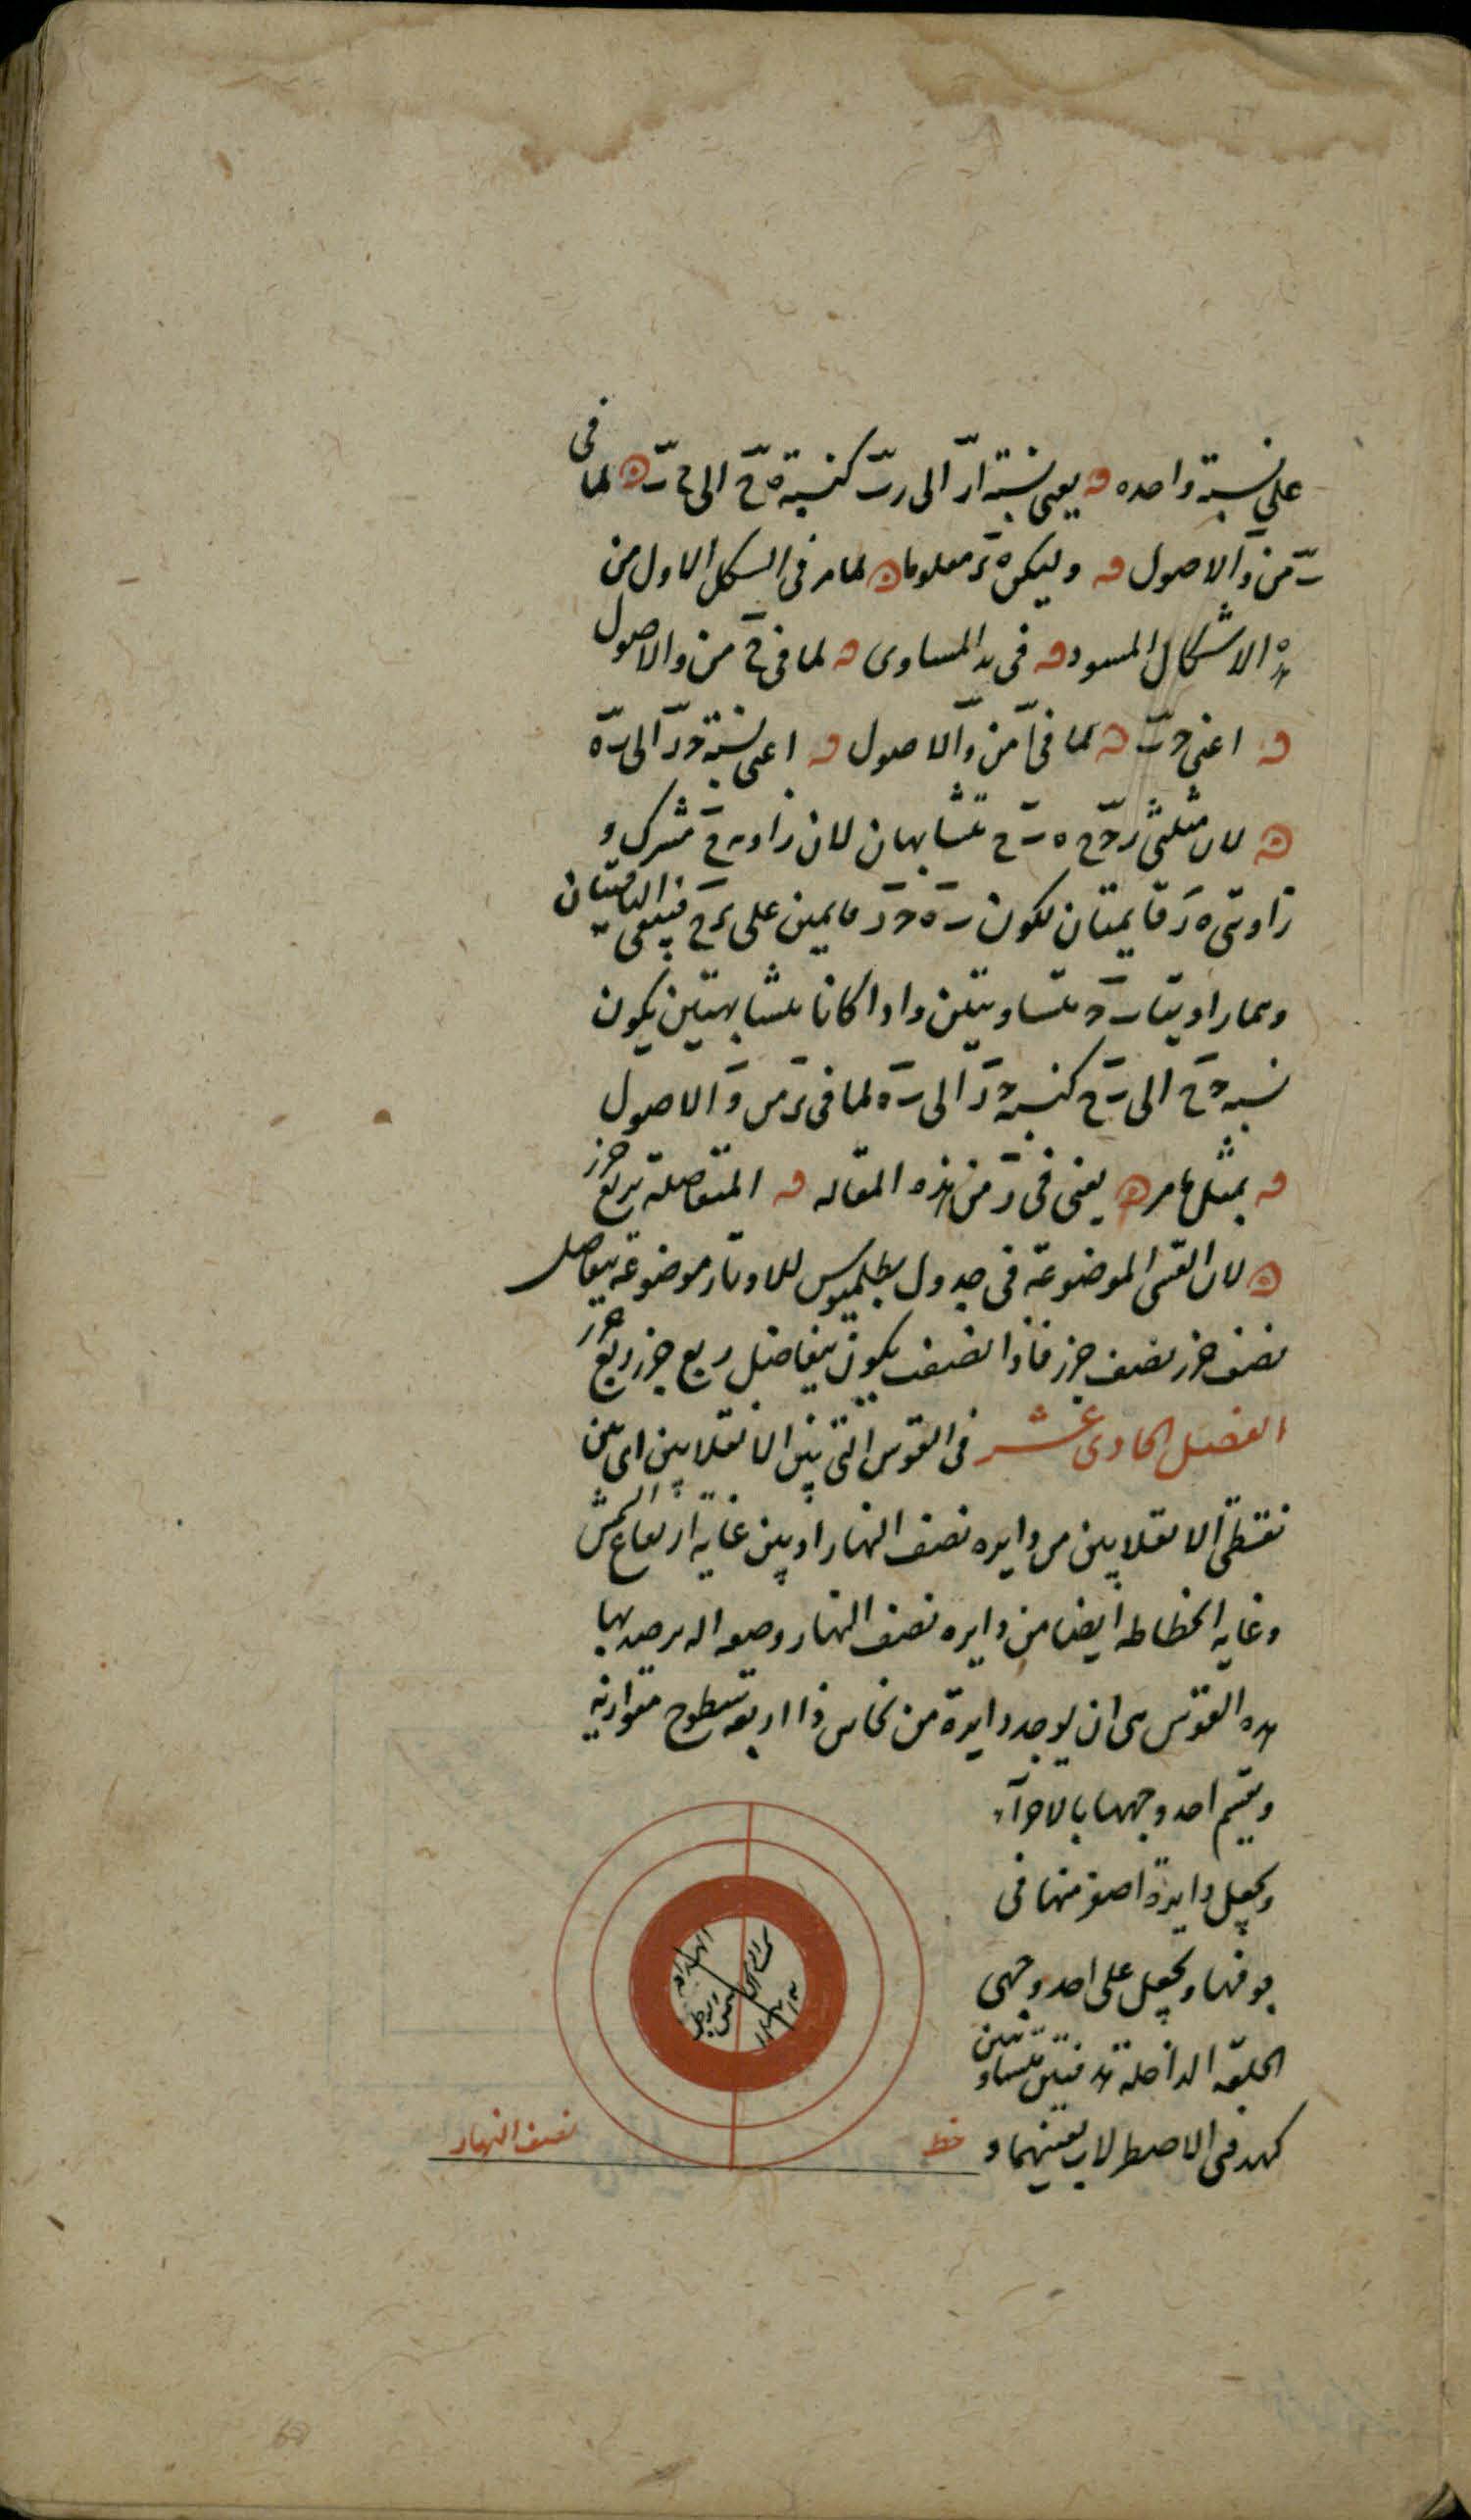 على نسبة واحده ۵ يعنى نسبة ار الى رب كنسبة ه ح الى ح ب ۵ لما فى
ب من و الاصول ۵ وليكن ه ر معلوما ۵ لما مر فى الشكل الاول من
هذه الاشكال المسود ۵ فى يد المساوى ۵ لما فى ح من و الاصول
۵ اعنى د ب ۵ لما فى ا من و الاصول ۵ اعنى نسبة د ر الى ب ه
۵ لان مثلثى ر د ح ه ب ح متشابهان لان زاويه ح مشترك و
زاويتى ه ر قايمتان لكون ب ه د ر قايمين على ر ح فيبقى الباقيتان
وهما زاويتا ب د متساويتين واذا كانا متشابهتين يكون
نسبه د ح الى ب ح كنسبة د ر الى ب ه لما فى ر من و الاصول
۵ بمثل ما مر ۵ يعنى فى ر من هذه المقاله ۵ المتفاضلة بربع جزء
۵ لان القسى الموضوعة فى جدول بطلميوس للاوتار موضوعة بتفاضل
نصف جزء نصف جزء فاذا نصف يكون بتفاضل ربع جزء ربع جزء
الفصل الحادى عشر فى القوس التى بين الانقلابين اى بين
نقطتى الانقلابين من دايره نصف النهار او بين غاية ارتفاع الشمس
وغايه انحطاطه ايضا من دايره نصف النهار وصنعه اله يرصد بها
هذه القوس هى ان يوجد دايرة من نحاس ذا اربعه سطوح متوازية
ويقسم احد وجهها بالاجزآء
ويجعل دايرة اصغر منها فى
جوفها ويجعل على احد وجهى
الحلقه الداخلة هدفتين متساويتين
كهدفى الاصطرلاب بعينهما و
سمت الراس
سمت الرجل
خط
نصف النهار